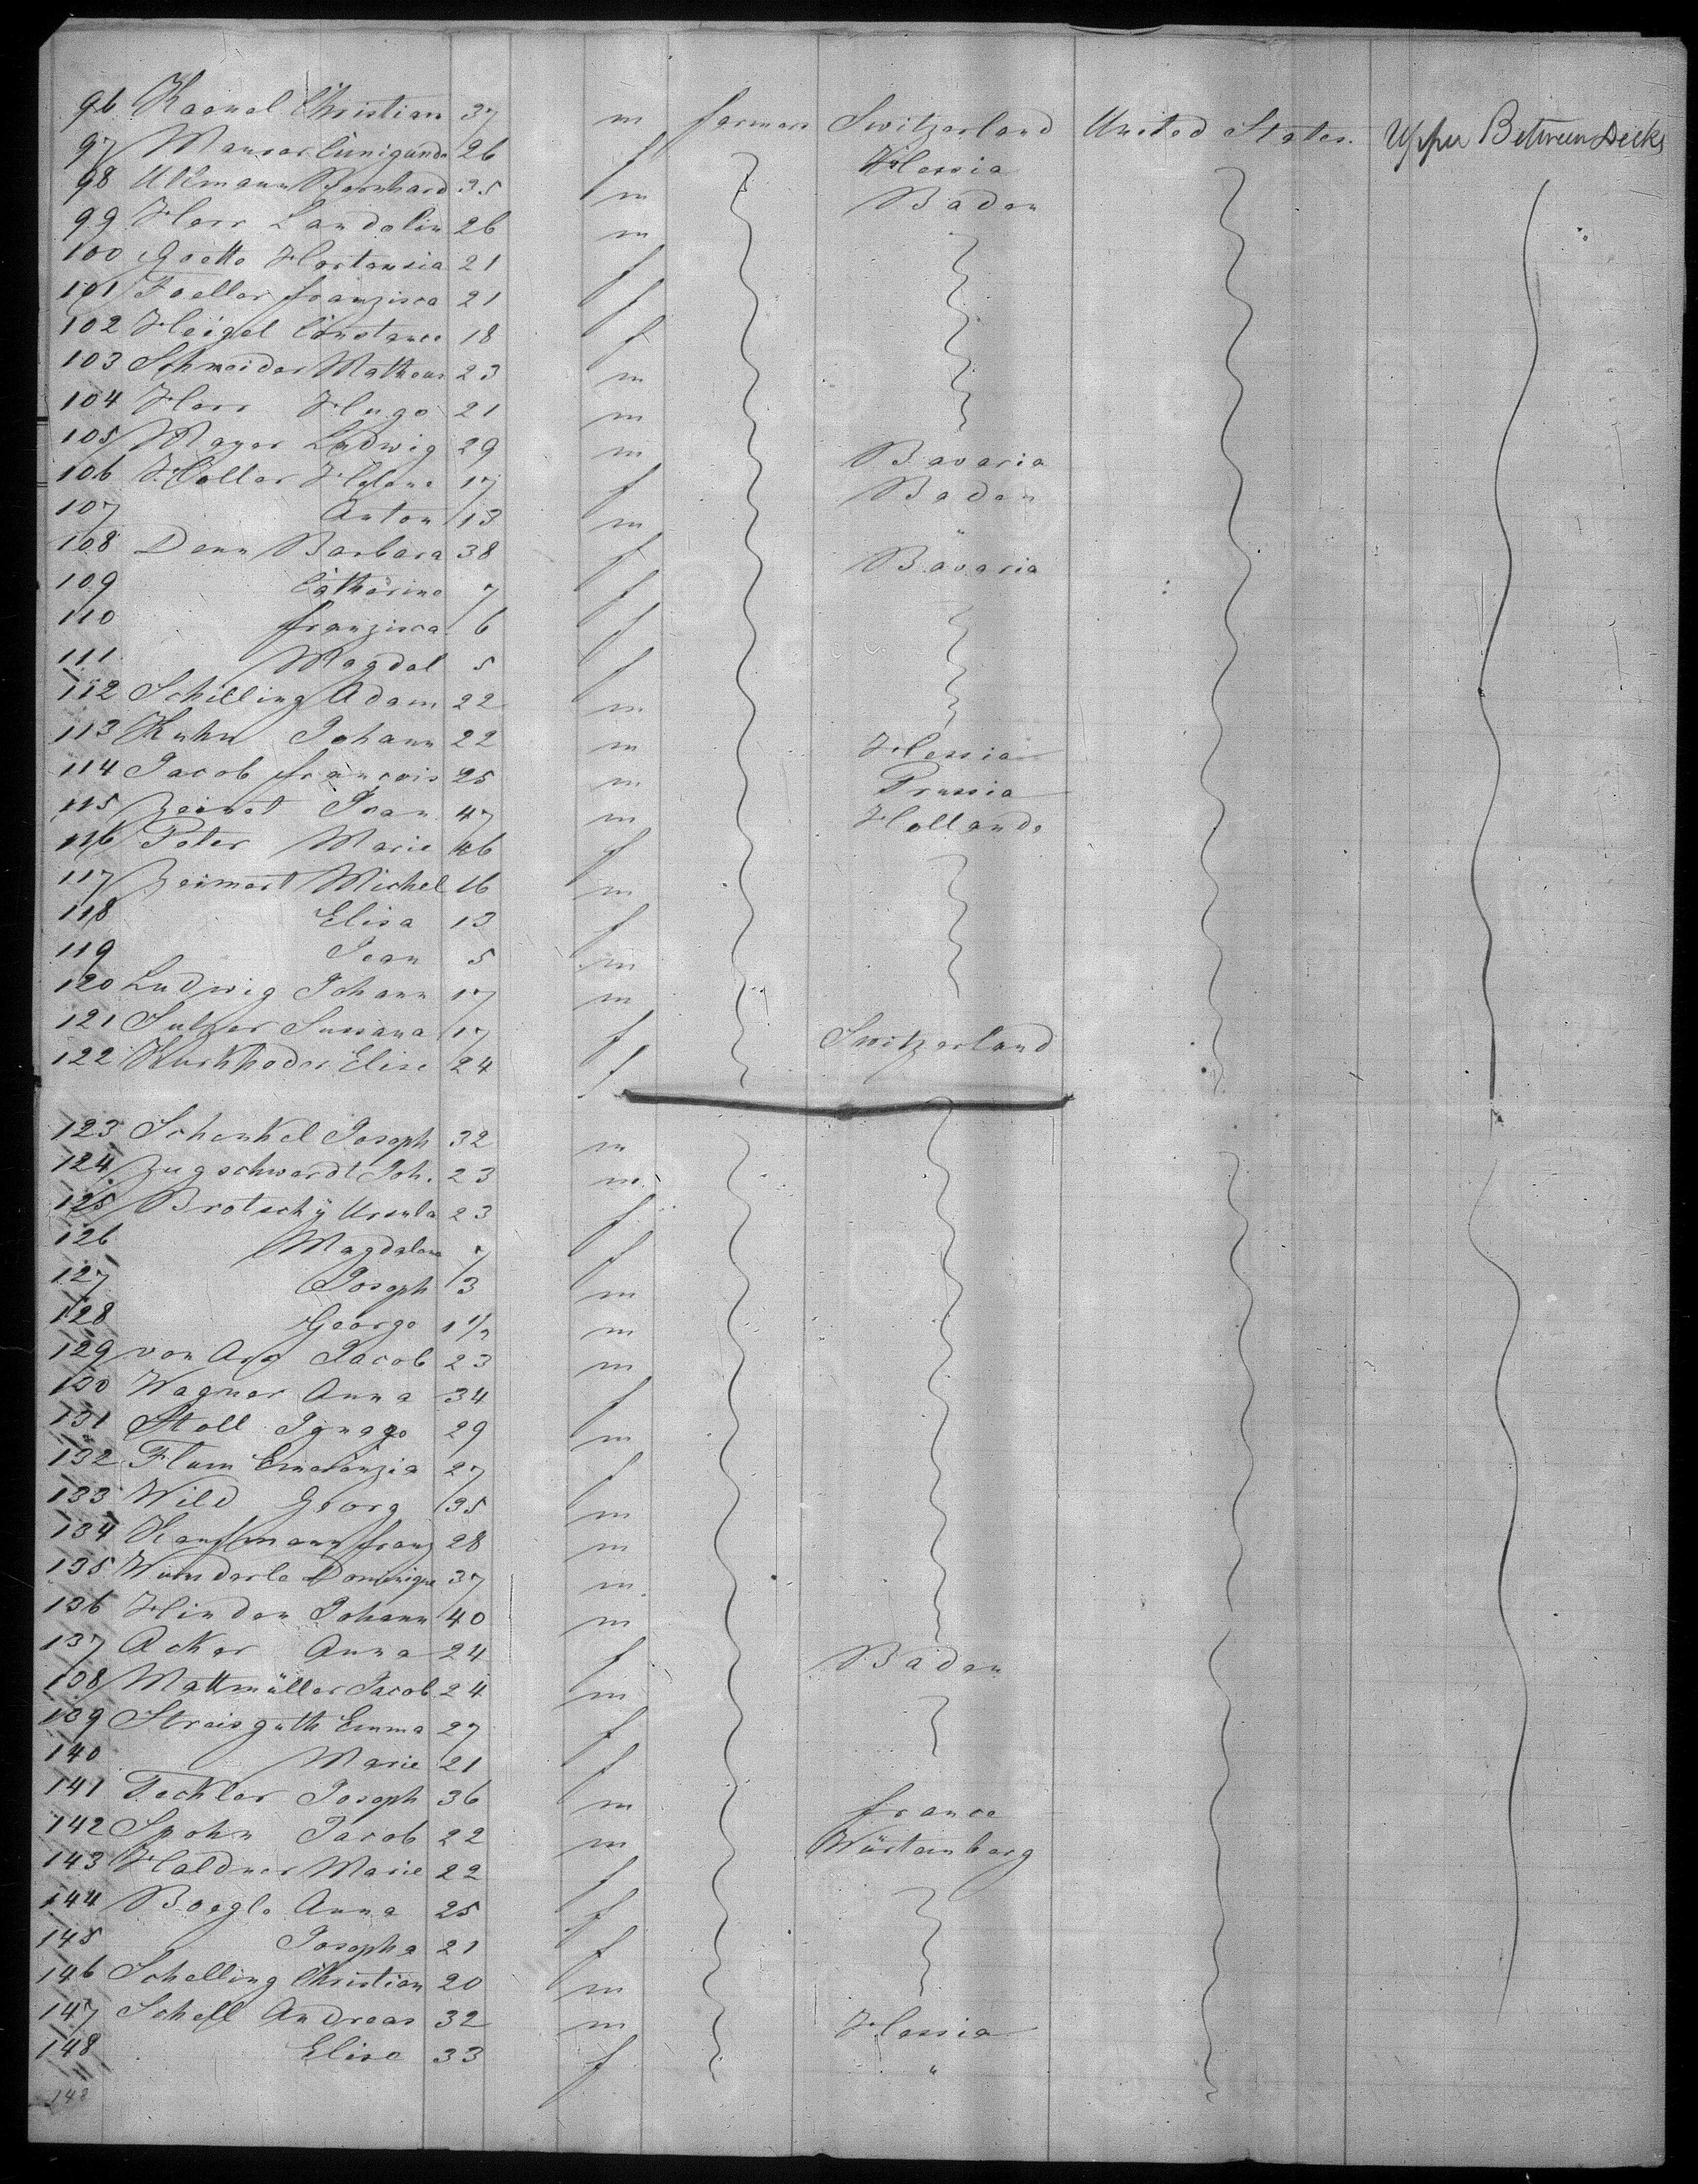 96 Kaenel Christian 37 m farmers Switzerland United States. Upper Between Decks
97 Maurer Cunigunde 26 f Hessia
98 Ullmann Bernhard 35 m Baden
99 Herr Landolin 26 m
100 Goette Hortensia 21 f
101 Foeller franzisca 21 f
102 Heigel Constance 18 f
103 Schneider Matheus 23 m
104 Herr Hugo 21 m
105 Mayer Ludwig 29 m Bavaria
106 Holler Helene 17 f Baden
107 Anton 13 m "
108 Denn Barbara 38 f Bavaria
109 Catharine 7 f
110 franzisca 6 f
111 Magdal 5 f
112 Schilling Adam 22 m
113 Kuhn Johann 22 m Hessia
114 Jacob francois 25 m Prussia
115 Jean 47 m Hollande
116 Peter Marie 46 f
117 Zeimert Michel 16 m
118 Elisa 13 f
119 Jean 5 m
120 Ludwig Johann 17 m
121 Sulzer Sussana 17 f Switzerland
122 Elise 24 f
123 Schenkel Joseph 32 m
124 Zugschwerdt Joh. 23 m
125 Brotschÿ Ursula 23 f
126 Magdalena 7 f
127 Joseph 3 m
128 George 1 1/2 m
129 von Arx Jacob 23 m
130 Wagner Anna 34 f
131 Stoll Ignaze 29 m
132 Flum Emerenzia 27 f
133 Wild Georg 35 m
134 Kauffmann franz 28 m
135 Wunderle Dominique 37 m
136 Hinden Johann 40 m
137 Acker Anna 24 f Baden
138 Mattmüller Jacob 24 m
139 Streisguth Emma 27 f
140 Marie 21 f
141 Teckler Joseph 36 m france
142 Spohn Jacob 22 m Würtemberg
143 Haldner Marie 22 f
144 Boegle Anna 25 f
145 Josepha 21 f
146 Schelling Christian 20 m
147 Schell Andreas 32 m Hessia
148 Elise 33 f "
148